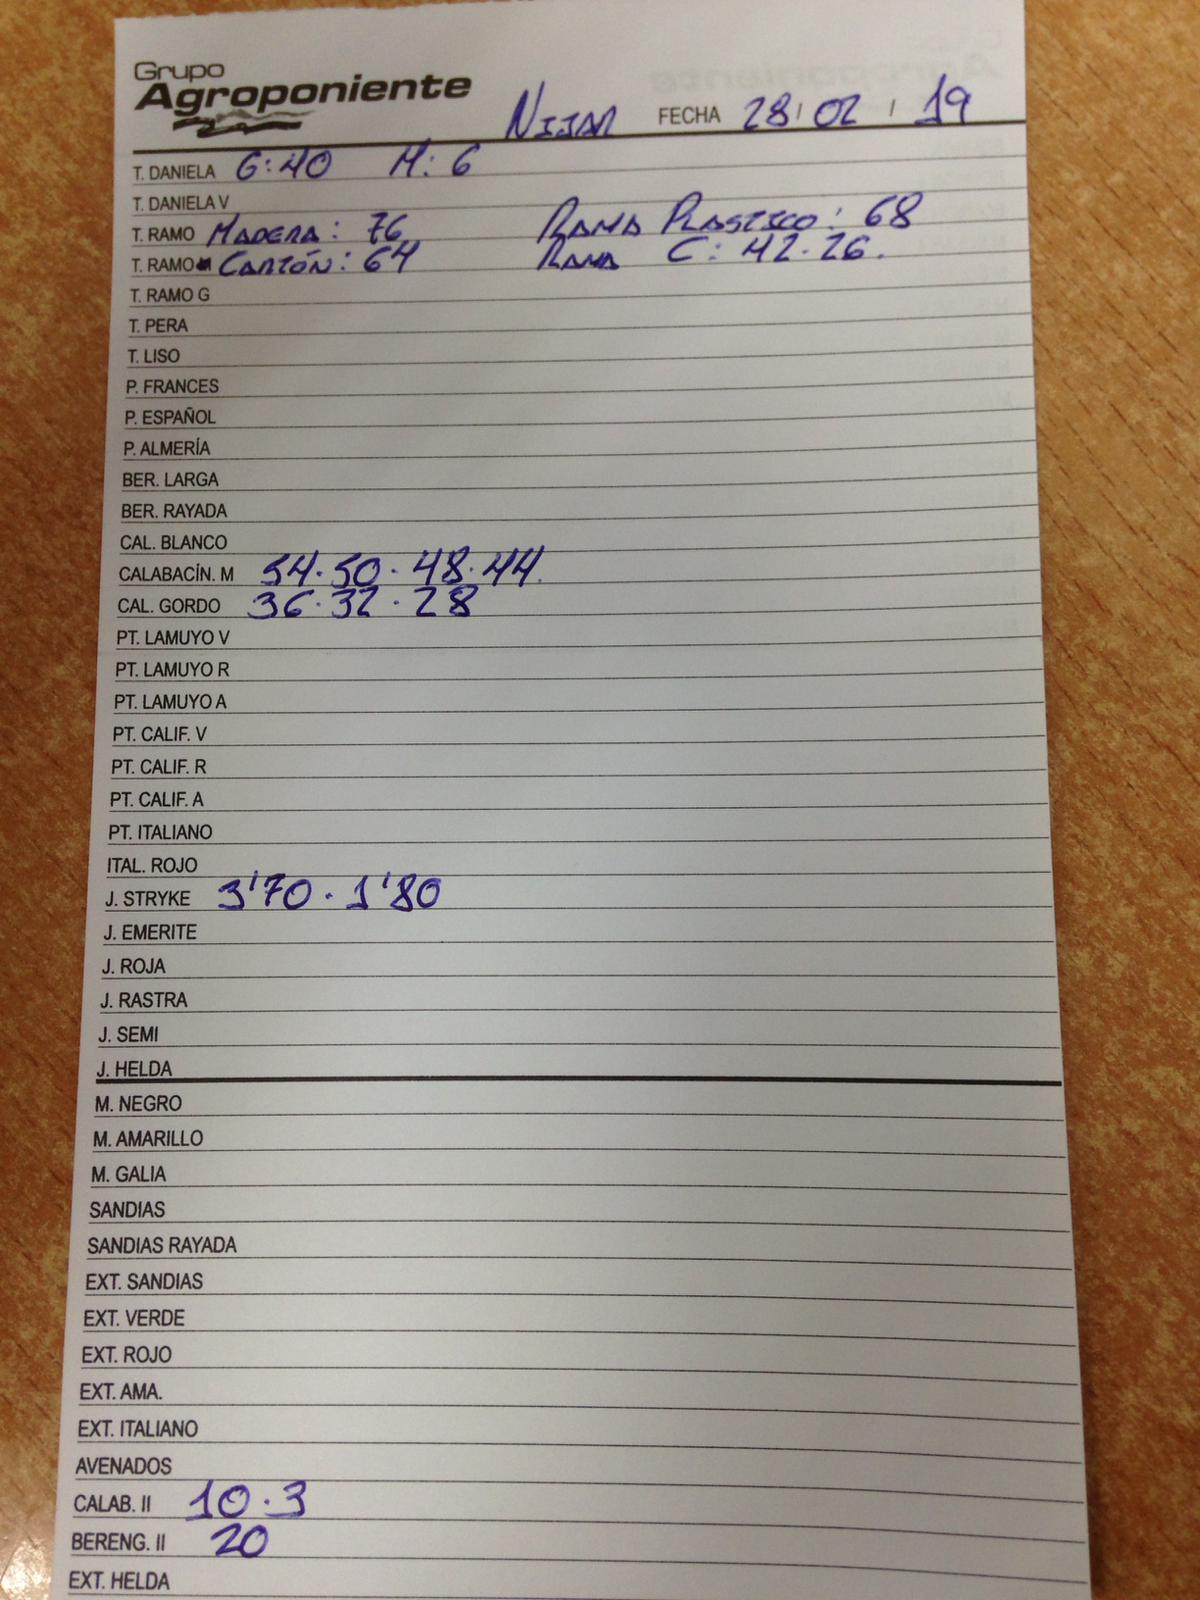 Grupo
Agroponiente
NIJAR FECHA 28/02/19
T. DANIELA G: 40 M: 6
T. DANIELA V
T. RAMO MADERA: 76 RAMA PLASTICO: 68
T. RAMO CARTÓN: 64 RAMA C: 42. 26.
T. RAMO G
T. PERA
T. LISO
P. FRANCES
P. ESPAÑOL
P. ALMERÍA
BER. LARGA
BER. RAYADA
CAL. BLANCO
CALABACÍN. M 54. 50. 48. 44.
CAL. GORDO 36. 32. 28
PT. LAMUYO V
PT. LAMUYO R
PT. LAMUYO A
PT. CALIF. V
PT. CALIF. R
PT. CALIF. A
PT. ITALIANO
ITAL. ROJO
J. STRYKE 3'70. 1'80
J. EMERITE
J. ROJA
J. RASTRA
J. SEMI
J. HELDA
M. NEGRO
M. AMARILLO
M. GALIA
SANDIAS
SANDIAS RAYADA
EXT. SANDIAS
EXT. VERDE
EXT. ROJO
EXT. AMA.
EXT. ITALIANO
AVENADOS
CALAB. II 10. 3
BERENG. II 20
EXT. HELDA